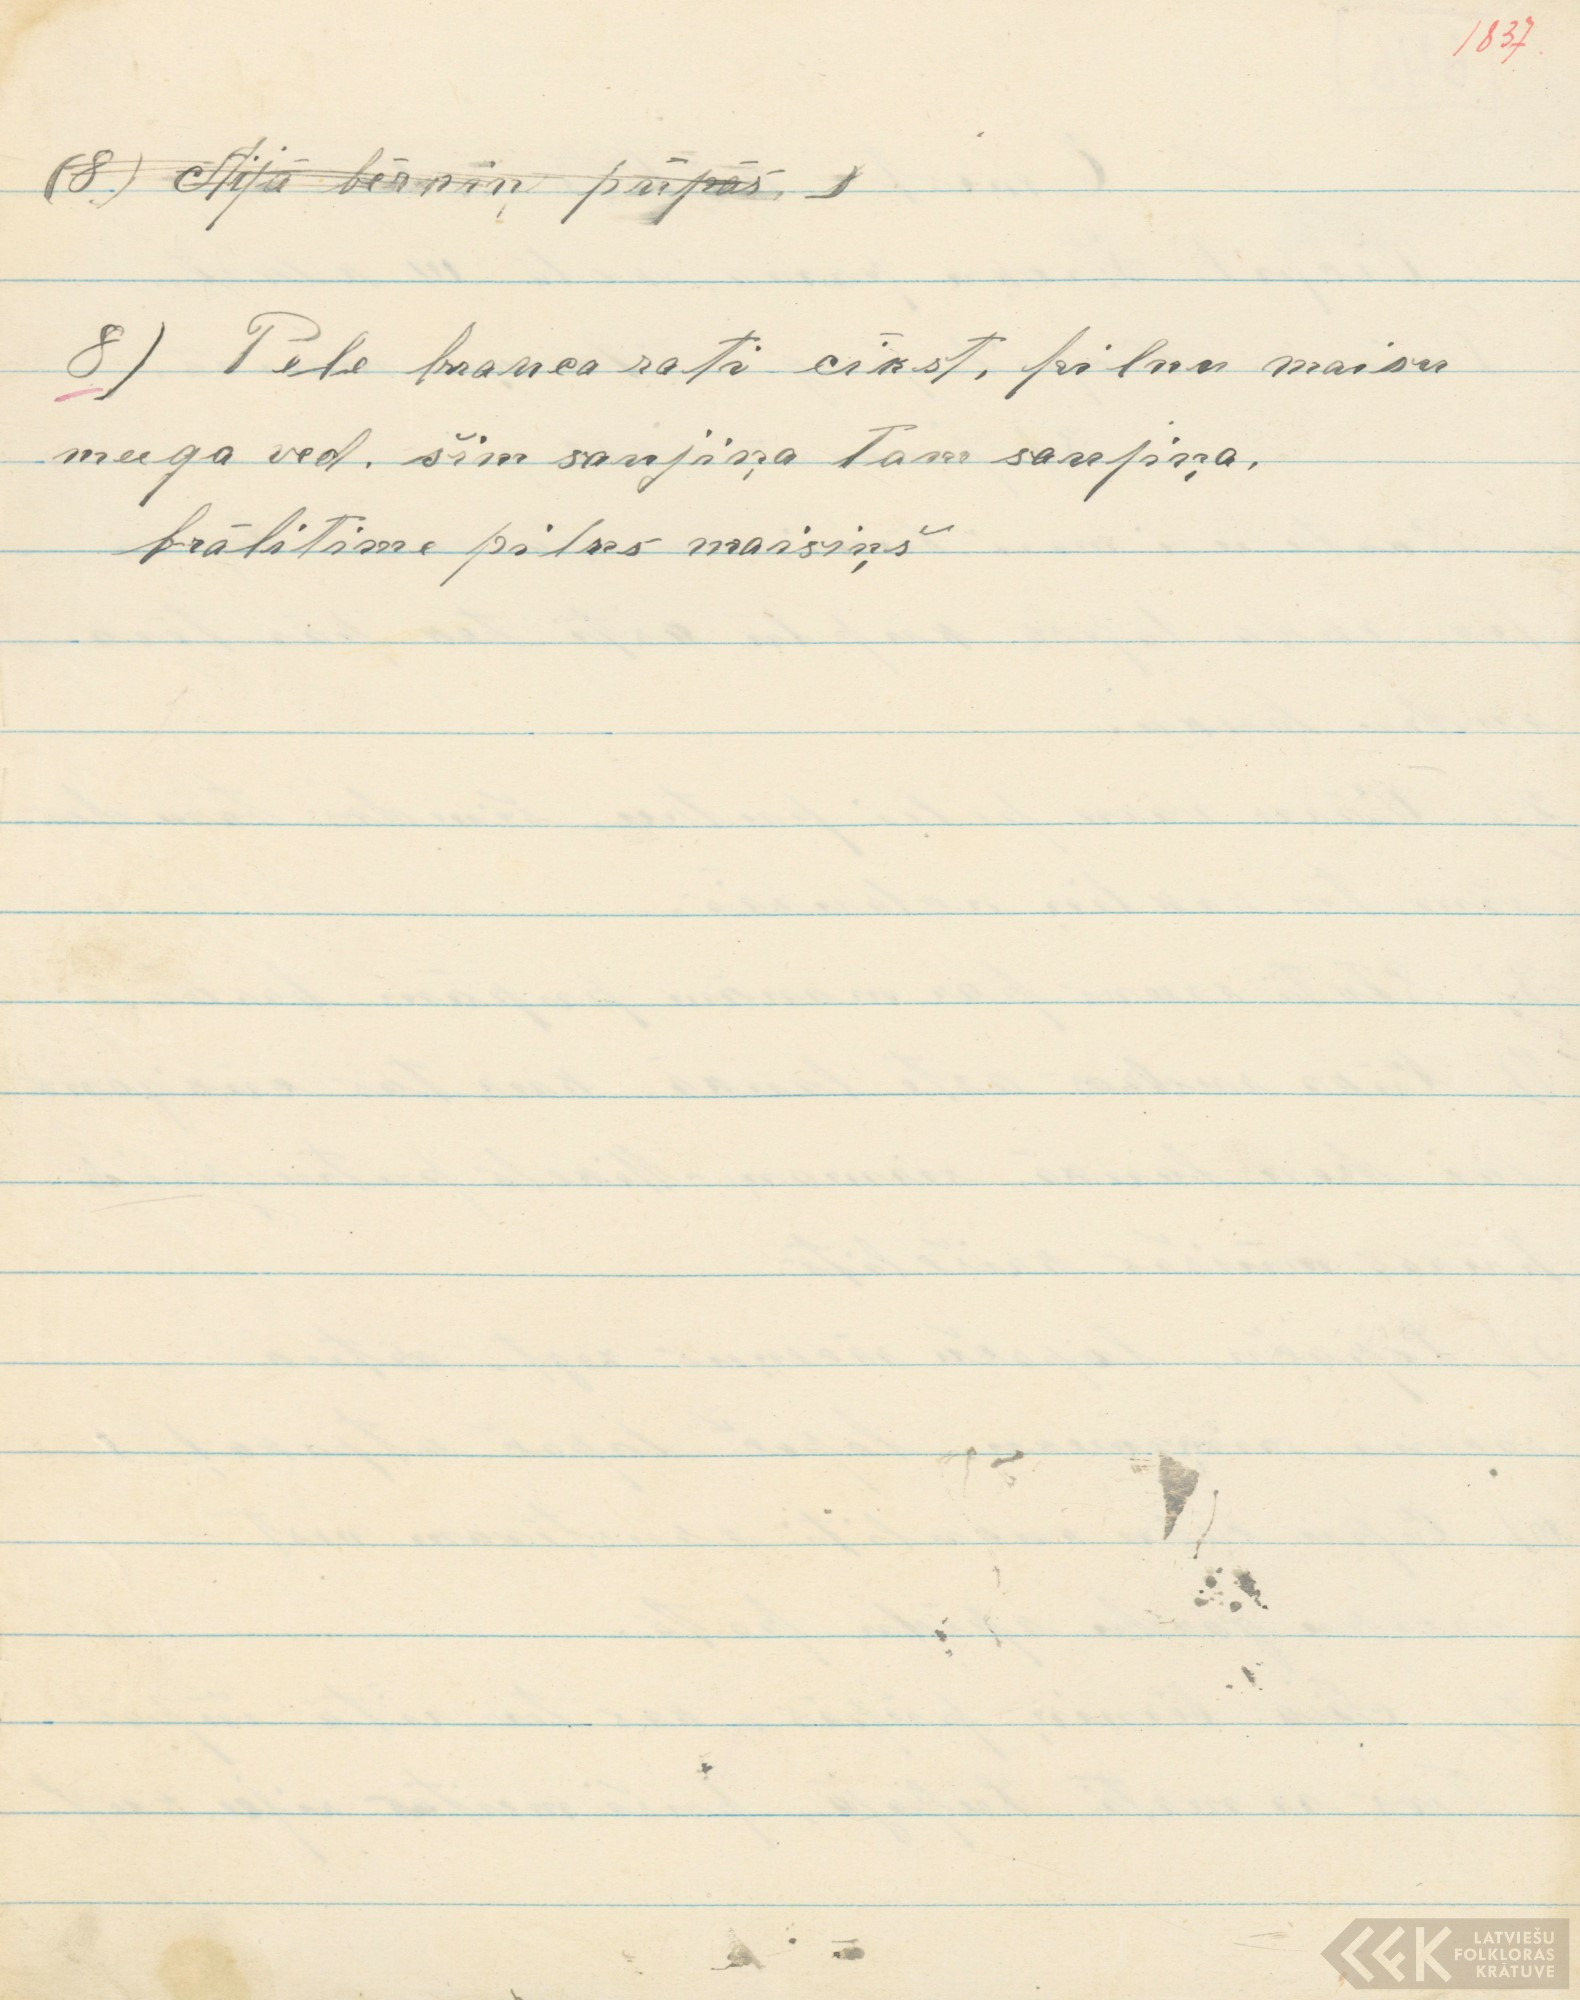 1837.
(8.) Aijā bērniņ pūpās.
8) Pele brauca rati čīkst, pilnu maisu
mega ved. šim saujiņa Tam saujiņa,
brālitime pilns maisiņš
LATVIEŠU
FOLKLORAS
KRĀTUVE